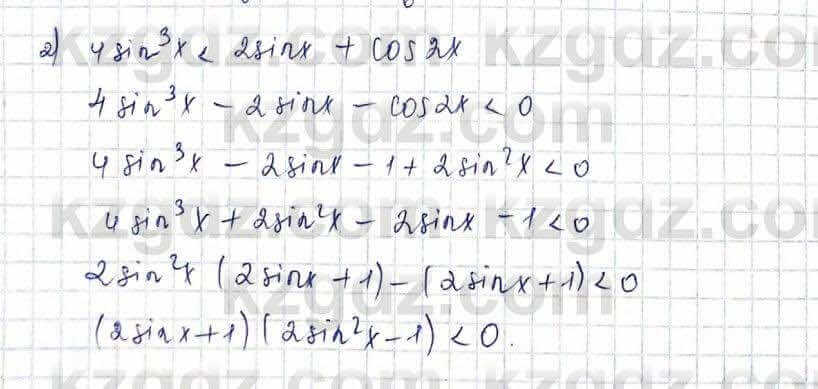 2) 4sin³x < 2sinx + cos2x
4sin³x - 2sinx - cos2x < 0
4sin³x - 2sinx - 1 + 2sin²x < 0
4sin³x + 2sin²x - 2sinx - 1 < 0
2sin²x (2sinx + 1) - (2sinx + 1) < 0
(2sinx + 1) (2sin²x - 1) < 0.
kzgdz.com